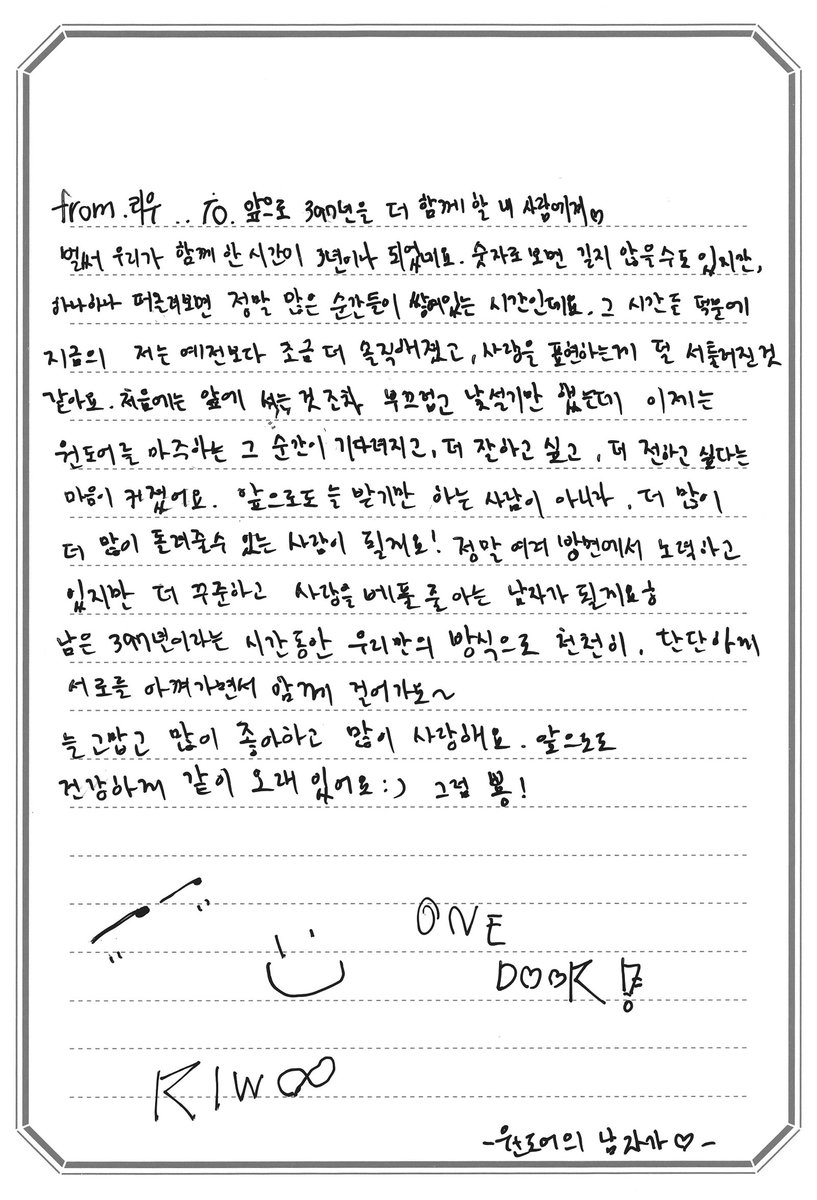 from.리우 .. To. 앞으로 397년을 더 함께 할 내 사람에게♡
벌써 우리가 함께 한 시간이 3년이나 되었네요. 숫자로 보면 길지 않을 수도 있지만,
하나하나 떠올려보면 정말 많은 순간들이 쌓여있는 시간인데요. 그 시간들 덕분에
지금의 저는 예전보다 조금 더 솔직해졌고, 사랑을 표현하는게 덜 서툴러진 것
같아요. 처음에는 앞에 서는 것 조차 부끄럽고 낯설기만 했는데 이제는
원도어를 마주하는 그 순간이 기다려지고, 더 잘하고 싶고, 더 전하고 싶다는
마음이 커졌어요. 앞으로도 늘 받기만 하는 사람이 아니라, 더 많이
더 많이 돌려줄수 있는 사람이 될게요! 정말 여러 방면에서 노력하고
있지만 더 꾸준하고 사랑을 베풀 줄 아는 남자가 될게요ㅎ
남은 397년이라는 시간동안 우리만의 방식으로 천천히, 단단하게
서로를 아껴가면서 함께 걸어가요~
늘 고맙고 많이 좋아하고 많이 사랑해요. 앞으로도
건강하게 같이 오래 있어요:) 그럼 뿅!
ONE
DOOR!
RIWOO
-원도어의 남자가♡-